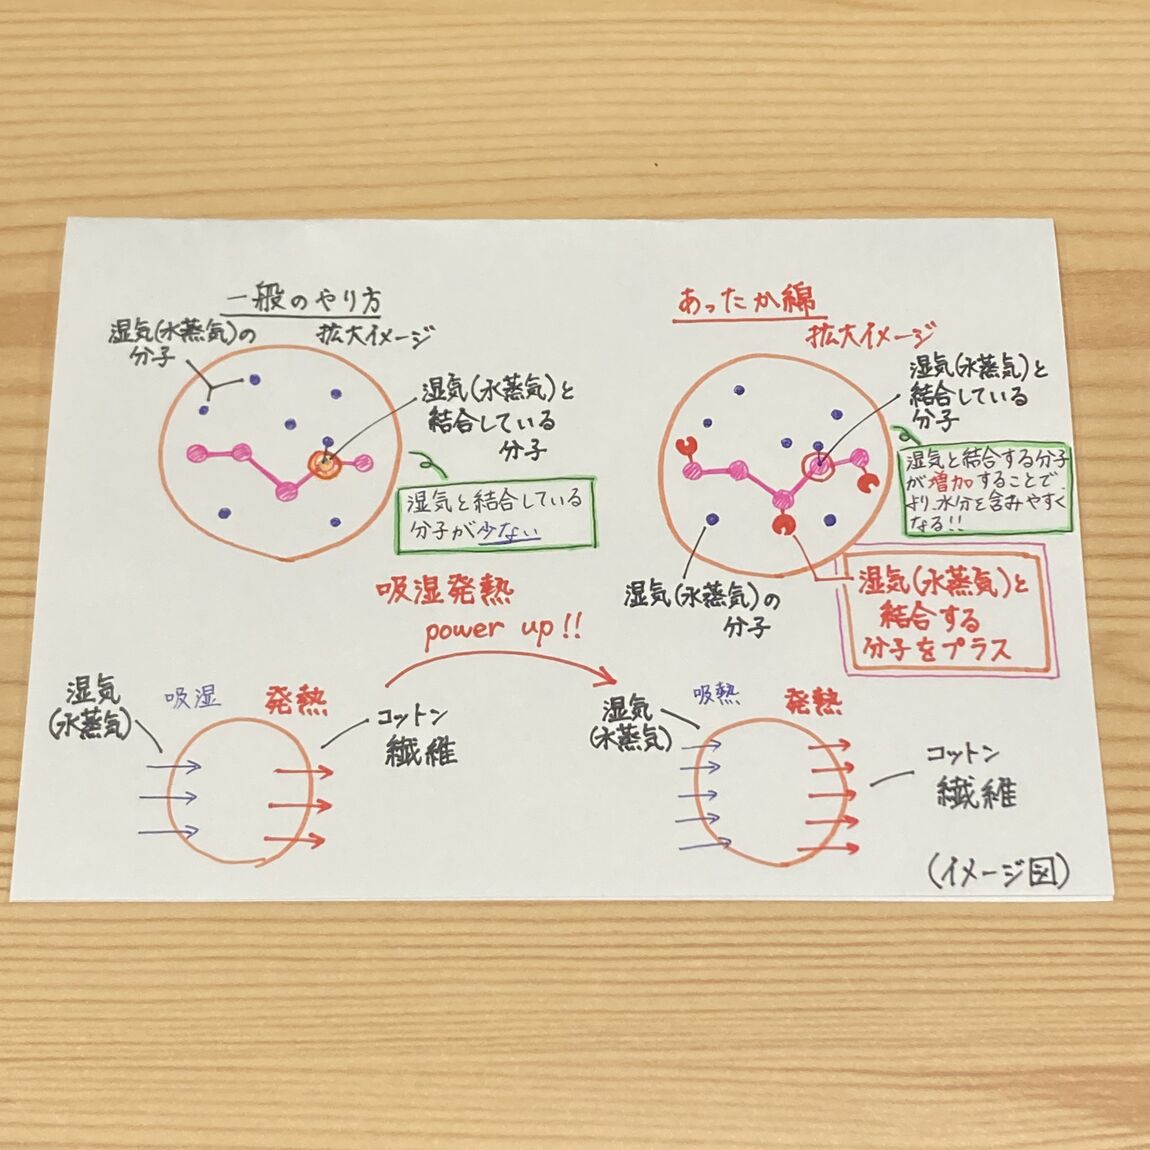 一般のやり方
湿気(水蒸気)の
分子
拡大イメージ
湿気(水蒸気)と
結合している
分子
湿気と結合している
分子が少ない
あったか綿
拡大イメージ
湿気(水蒸気)と
結合している
分子
湿気と結合する分子
が増加することで
より、水分を含みやすく
なる!!
湿気(水蒸気)の
分子
湿気(水蒸気)と
結合する
分子をプラス
吸湿発熱
power up!!
湿気
(水蒸気)
吸湿
発熱
コットン
繊維
湿気
(水蒸気)
吸熱
発熱
コットン
繊維
(イメージ図)